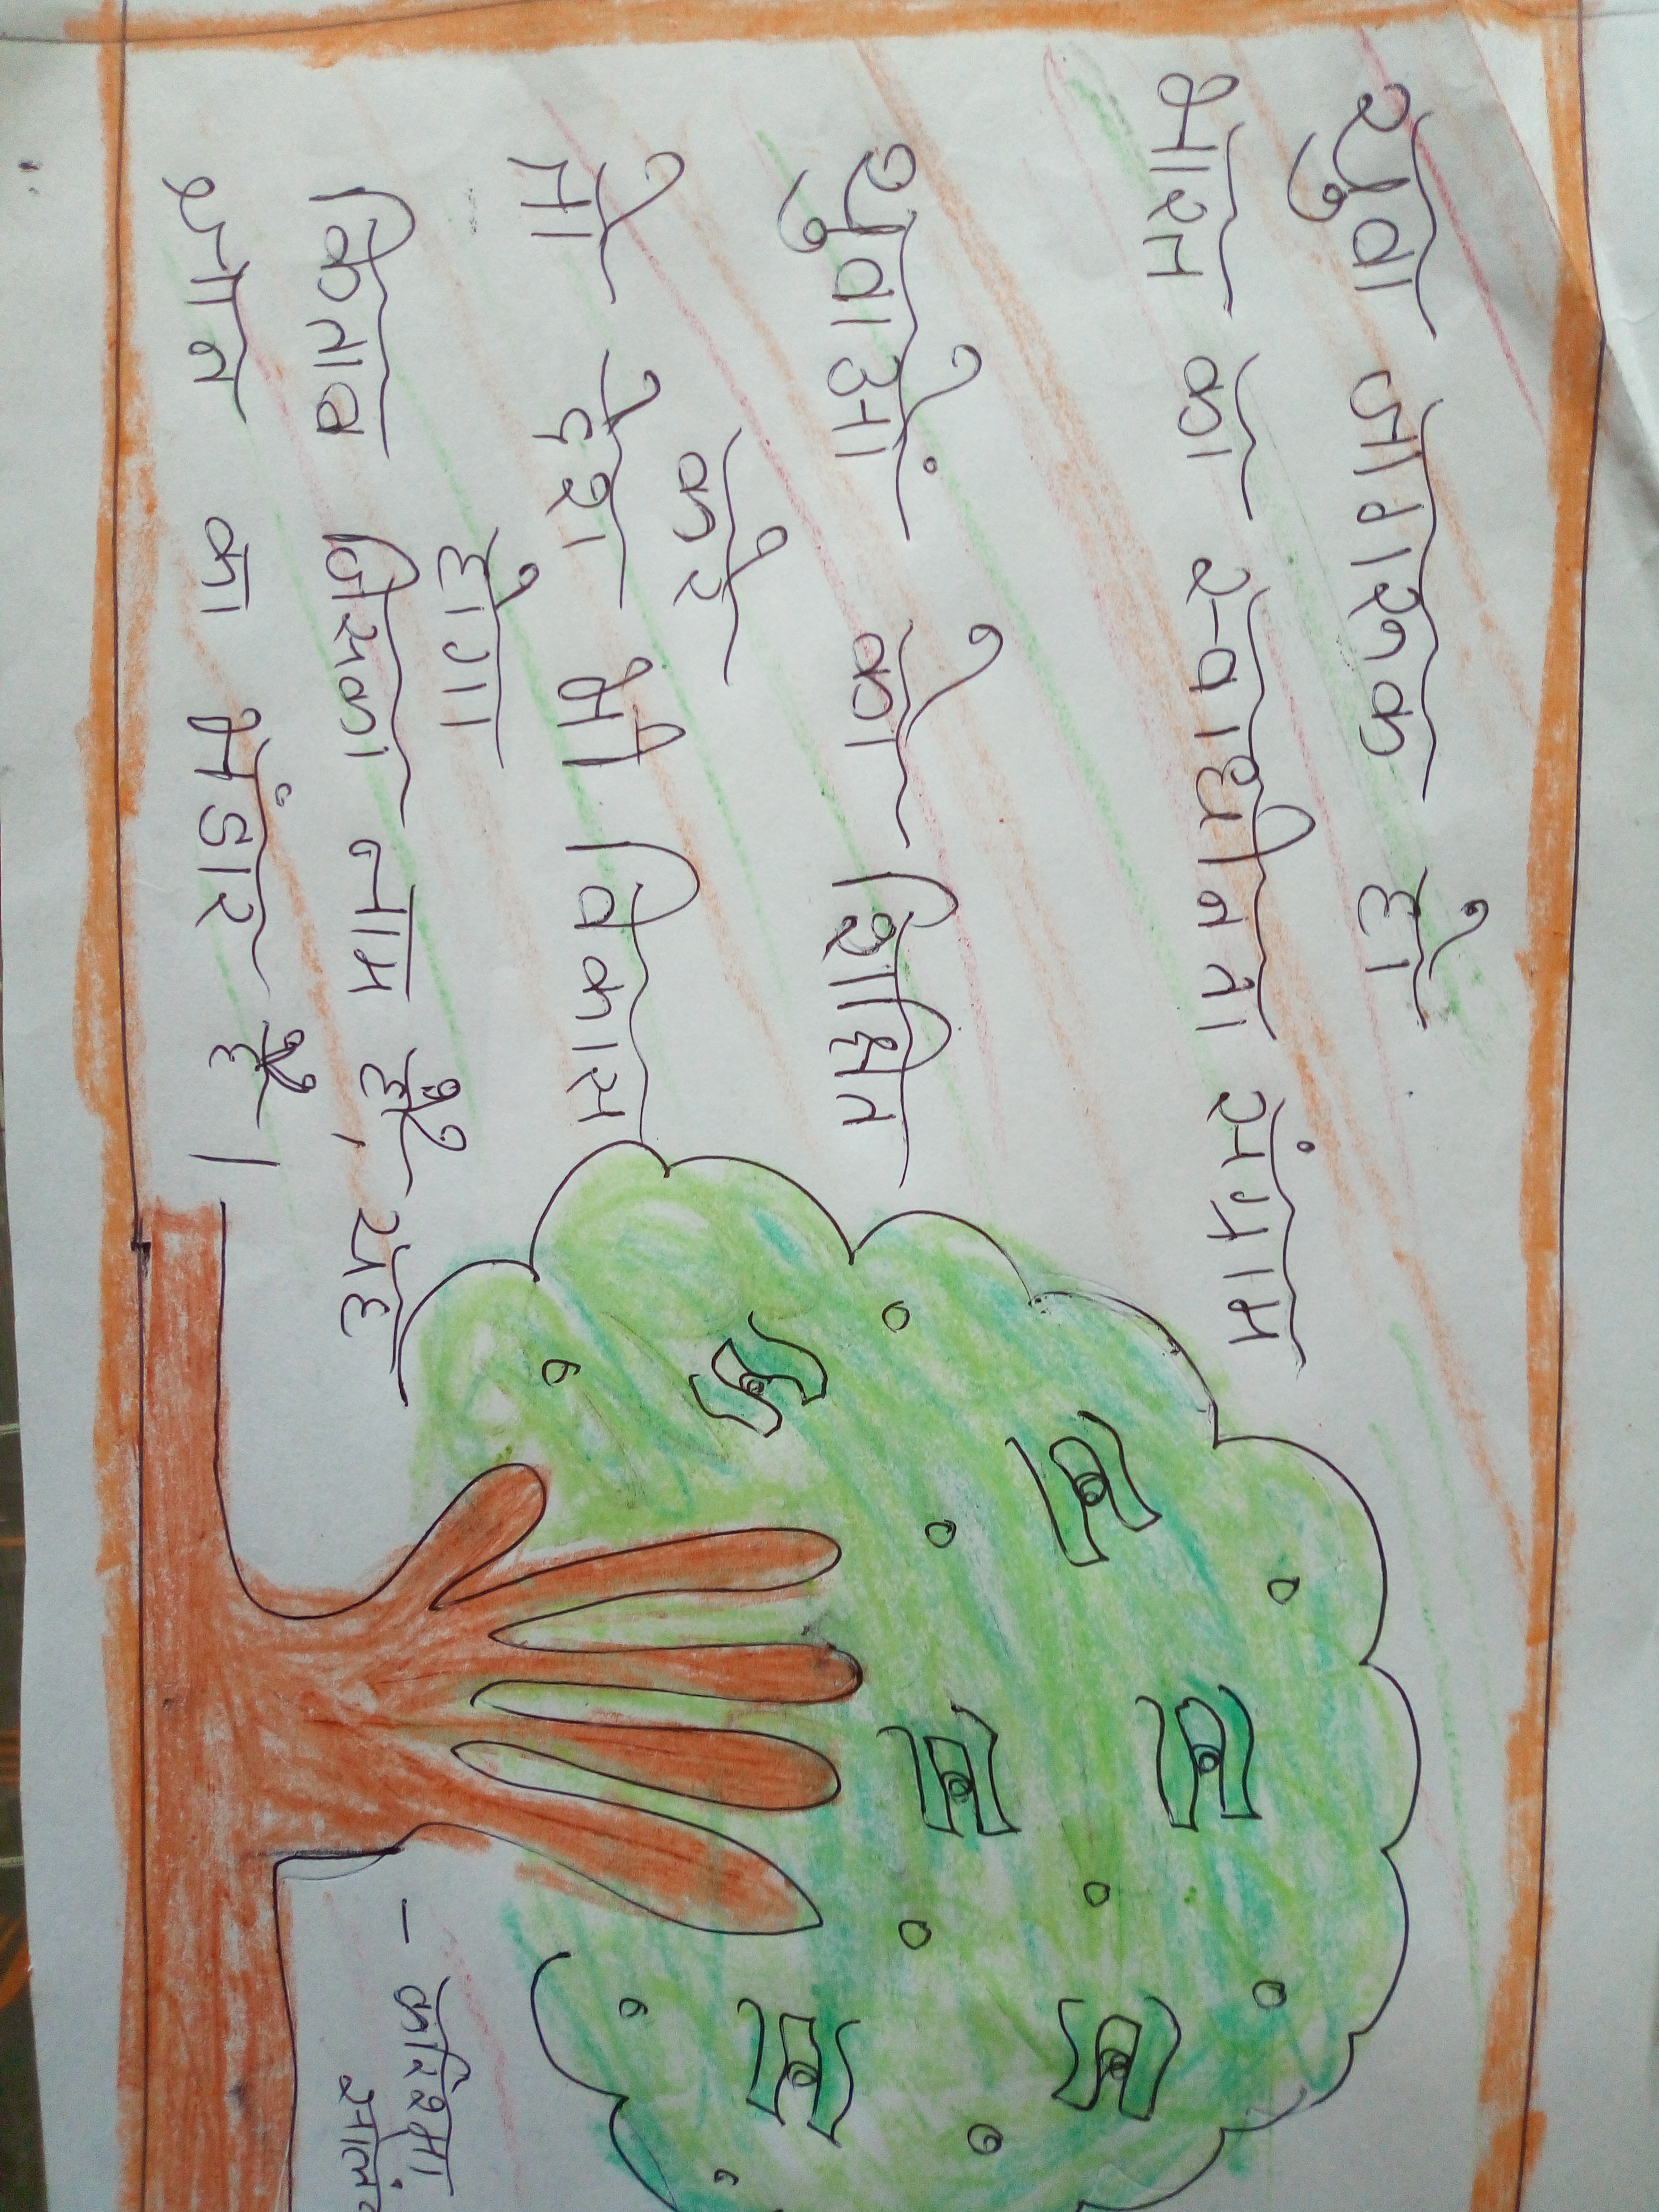 युवा जागरूक हो
भारत का स्वाधीनता संग्राम
युवाओं को शिक्षित
करें
तो देश भी विकास
होगा
किताब जिसका नाम है, यह
ज्ञान का भंडार है।
- करिश्मा